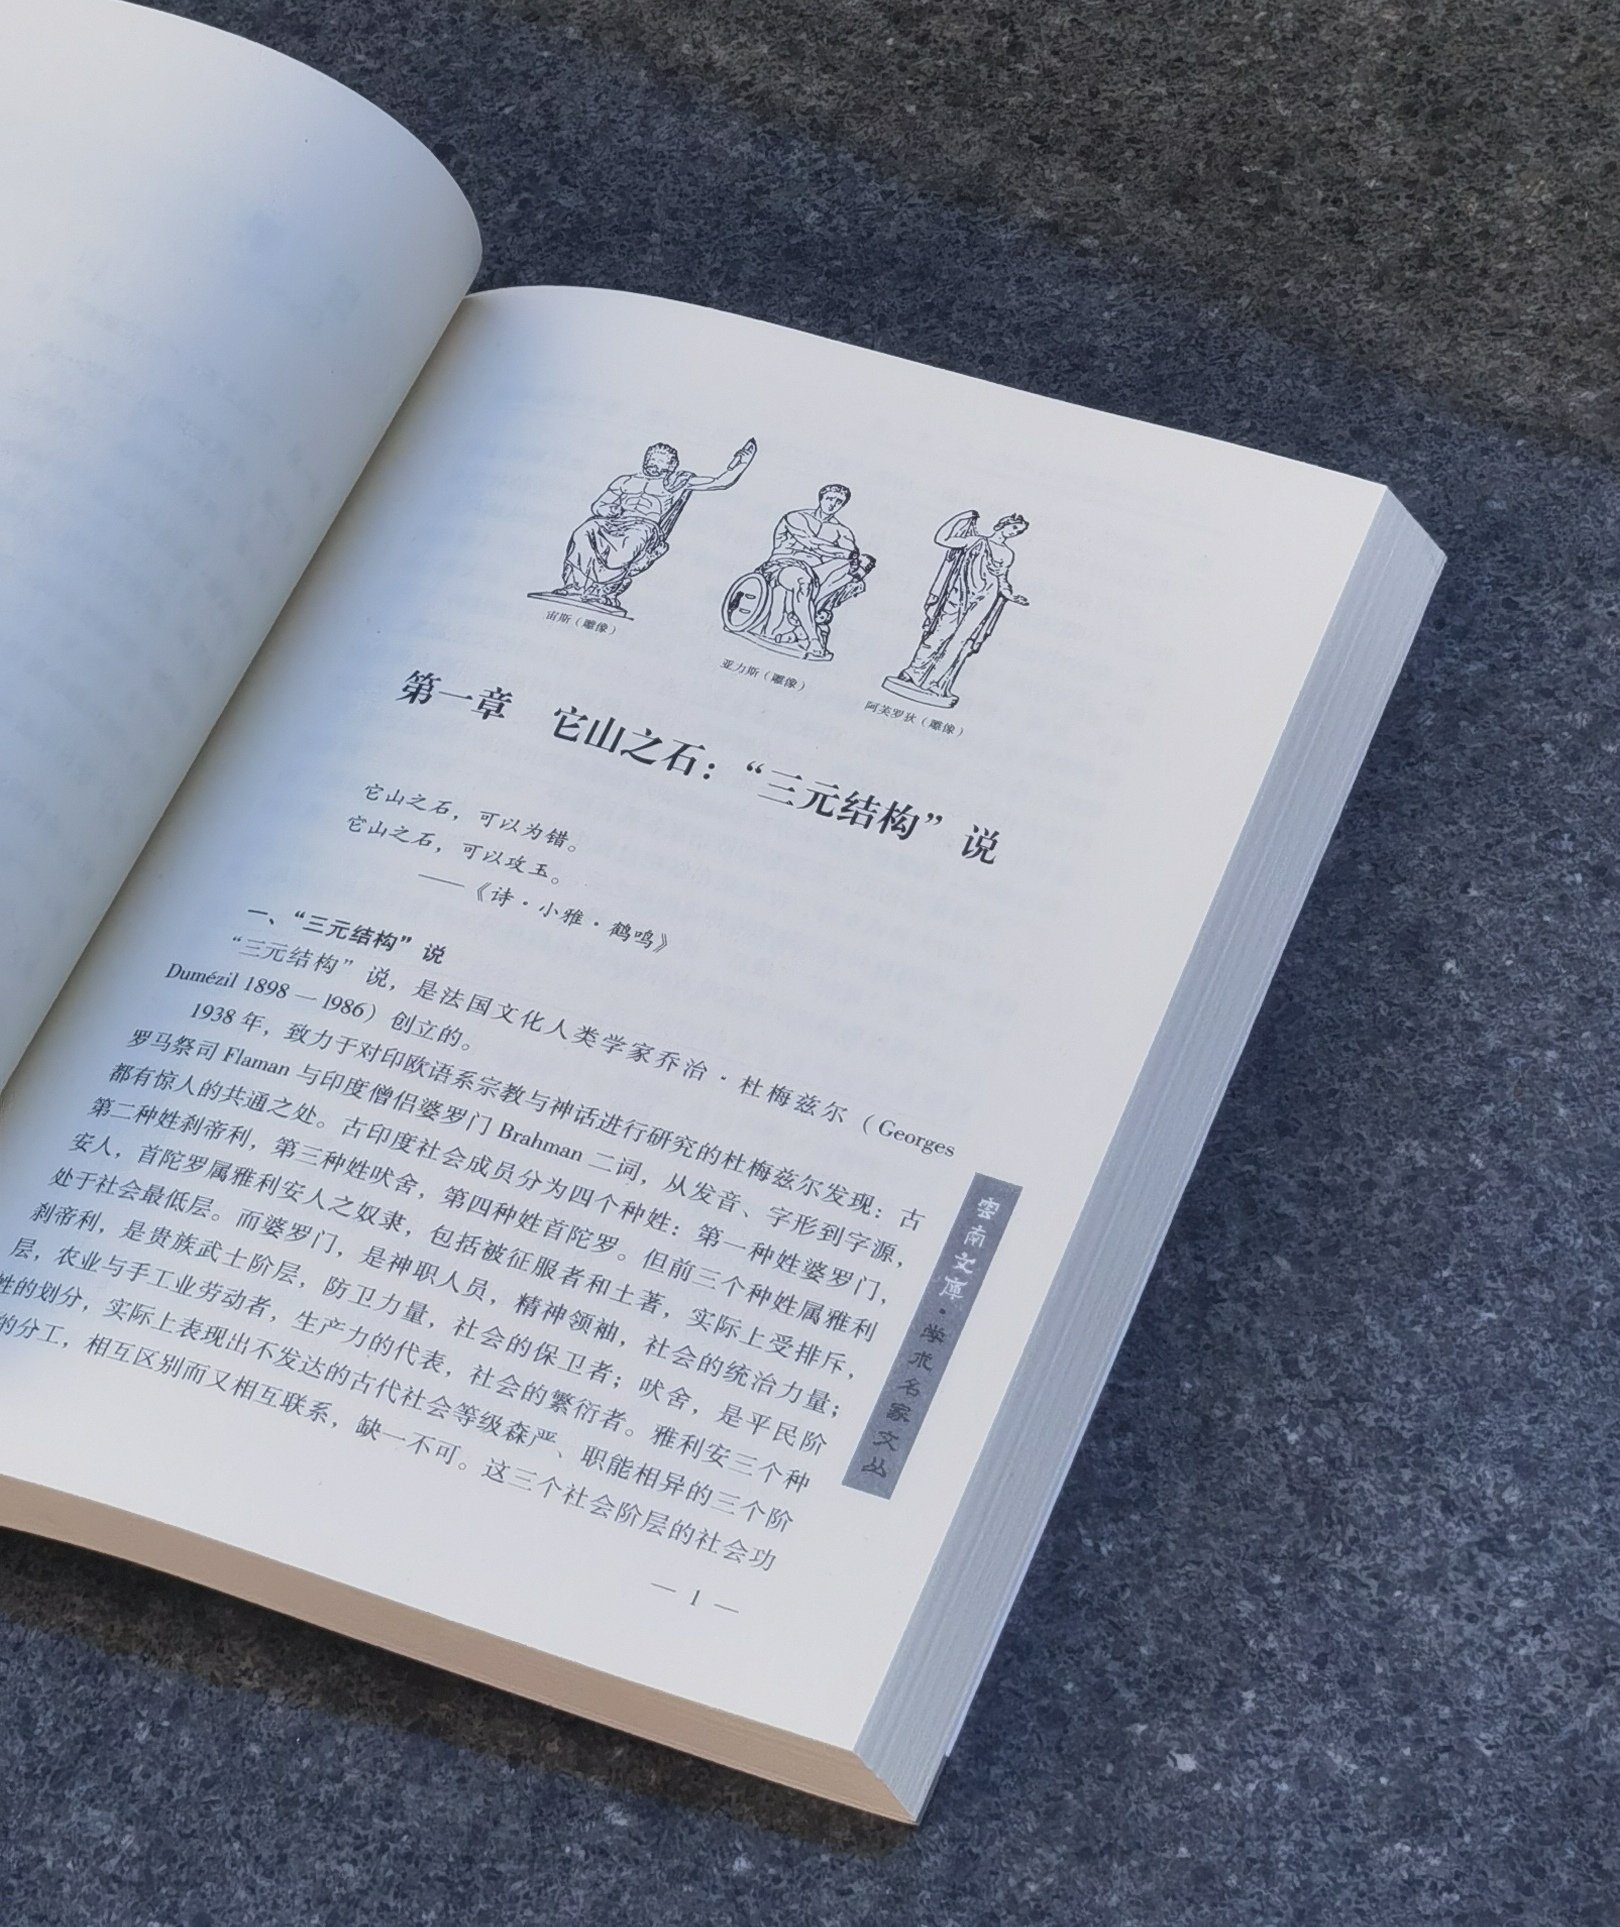 宙斯（雕像）
亚力斯（雕像）
阿芙罗狄（雕像）
第一章 它山之石：“三元结构”说
它山之石，可以为错。
它山之石，可以攻玉。
——《诗·小雅·鹤鸣》
一、“三元结构”说
“三元结构”说，是法国文化人类学家乔治·杜梅兹尔（Georges
Dumézil 1898—1986）创立的。
1938年，致力于对印欧语系宗教与神话进行研究的杜梅兹尔发现：古
罗马祭司 Flaman 与印度僧侣婆罗门 Brahman 二词，从发音、字形到字源，
都有惊人的共通之处。古印度社会成员分为四个种姓：第一种姓婆罗门，
第二种姓刹帝利，第三种姓吠舍，第四种姓首陀罗。但前三个种姓属雅利
安人，首陀罗属雅利安人之奴隶，包括被征服者和土著，实际上受排斥，
处于社会最低层。而婆罗门，是神职人员，精神领袖，社会的统治力量；
刹帝利，是贵族武士阶层，防卫力量，社会的保卫者；吠舍，是平民阶
层，农业与手工业劳动者，生产力的代表，社会的繁衍者。雅利安三个种
姓的划分，实际上表现出不发达的古代社会等级森严、职能相异的三个阶
的分工，相互区别而又相互联系，缺一不可。这三个社会阶层的社会功
云南文库·学术名家文丛
— 1 —